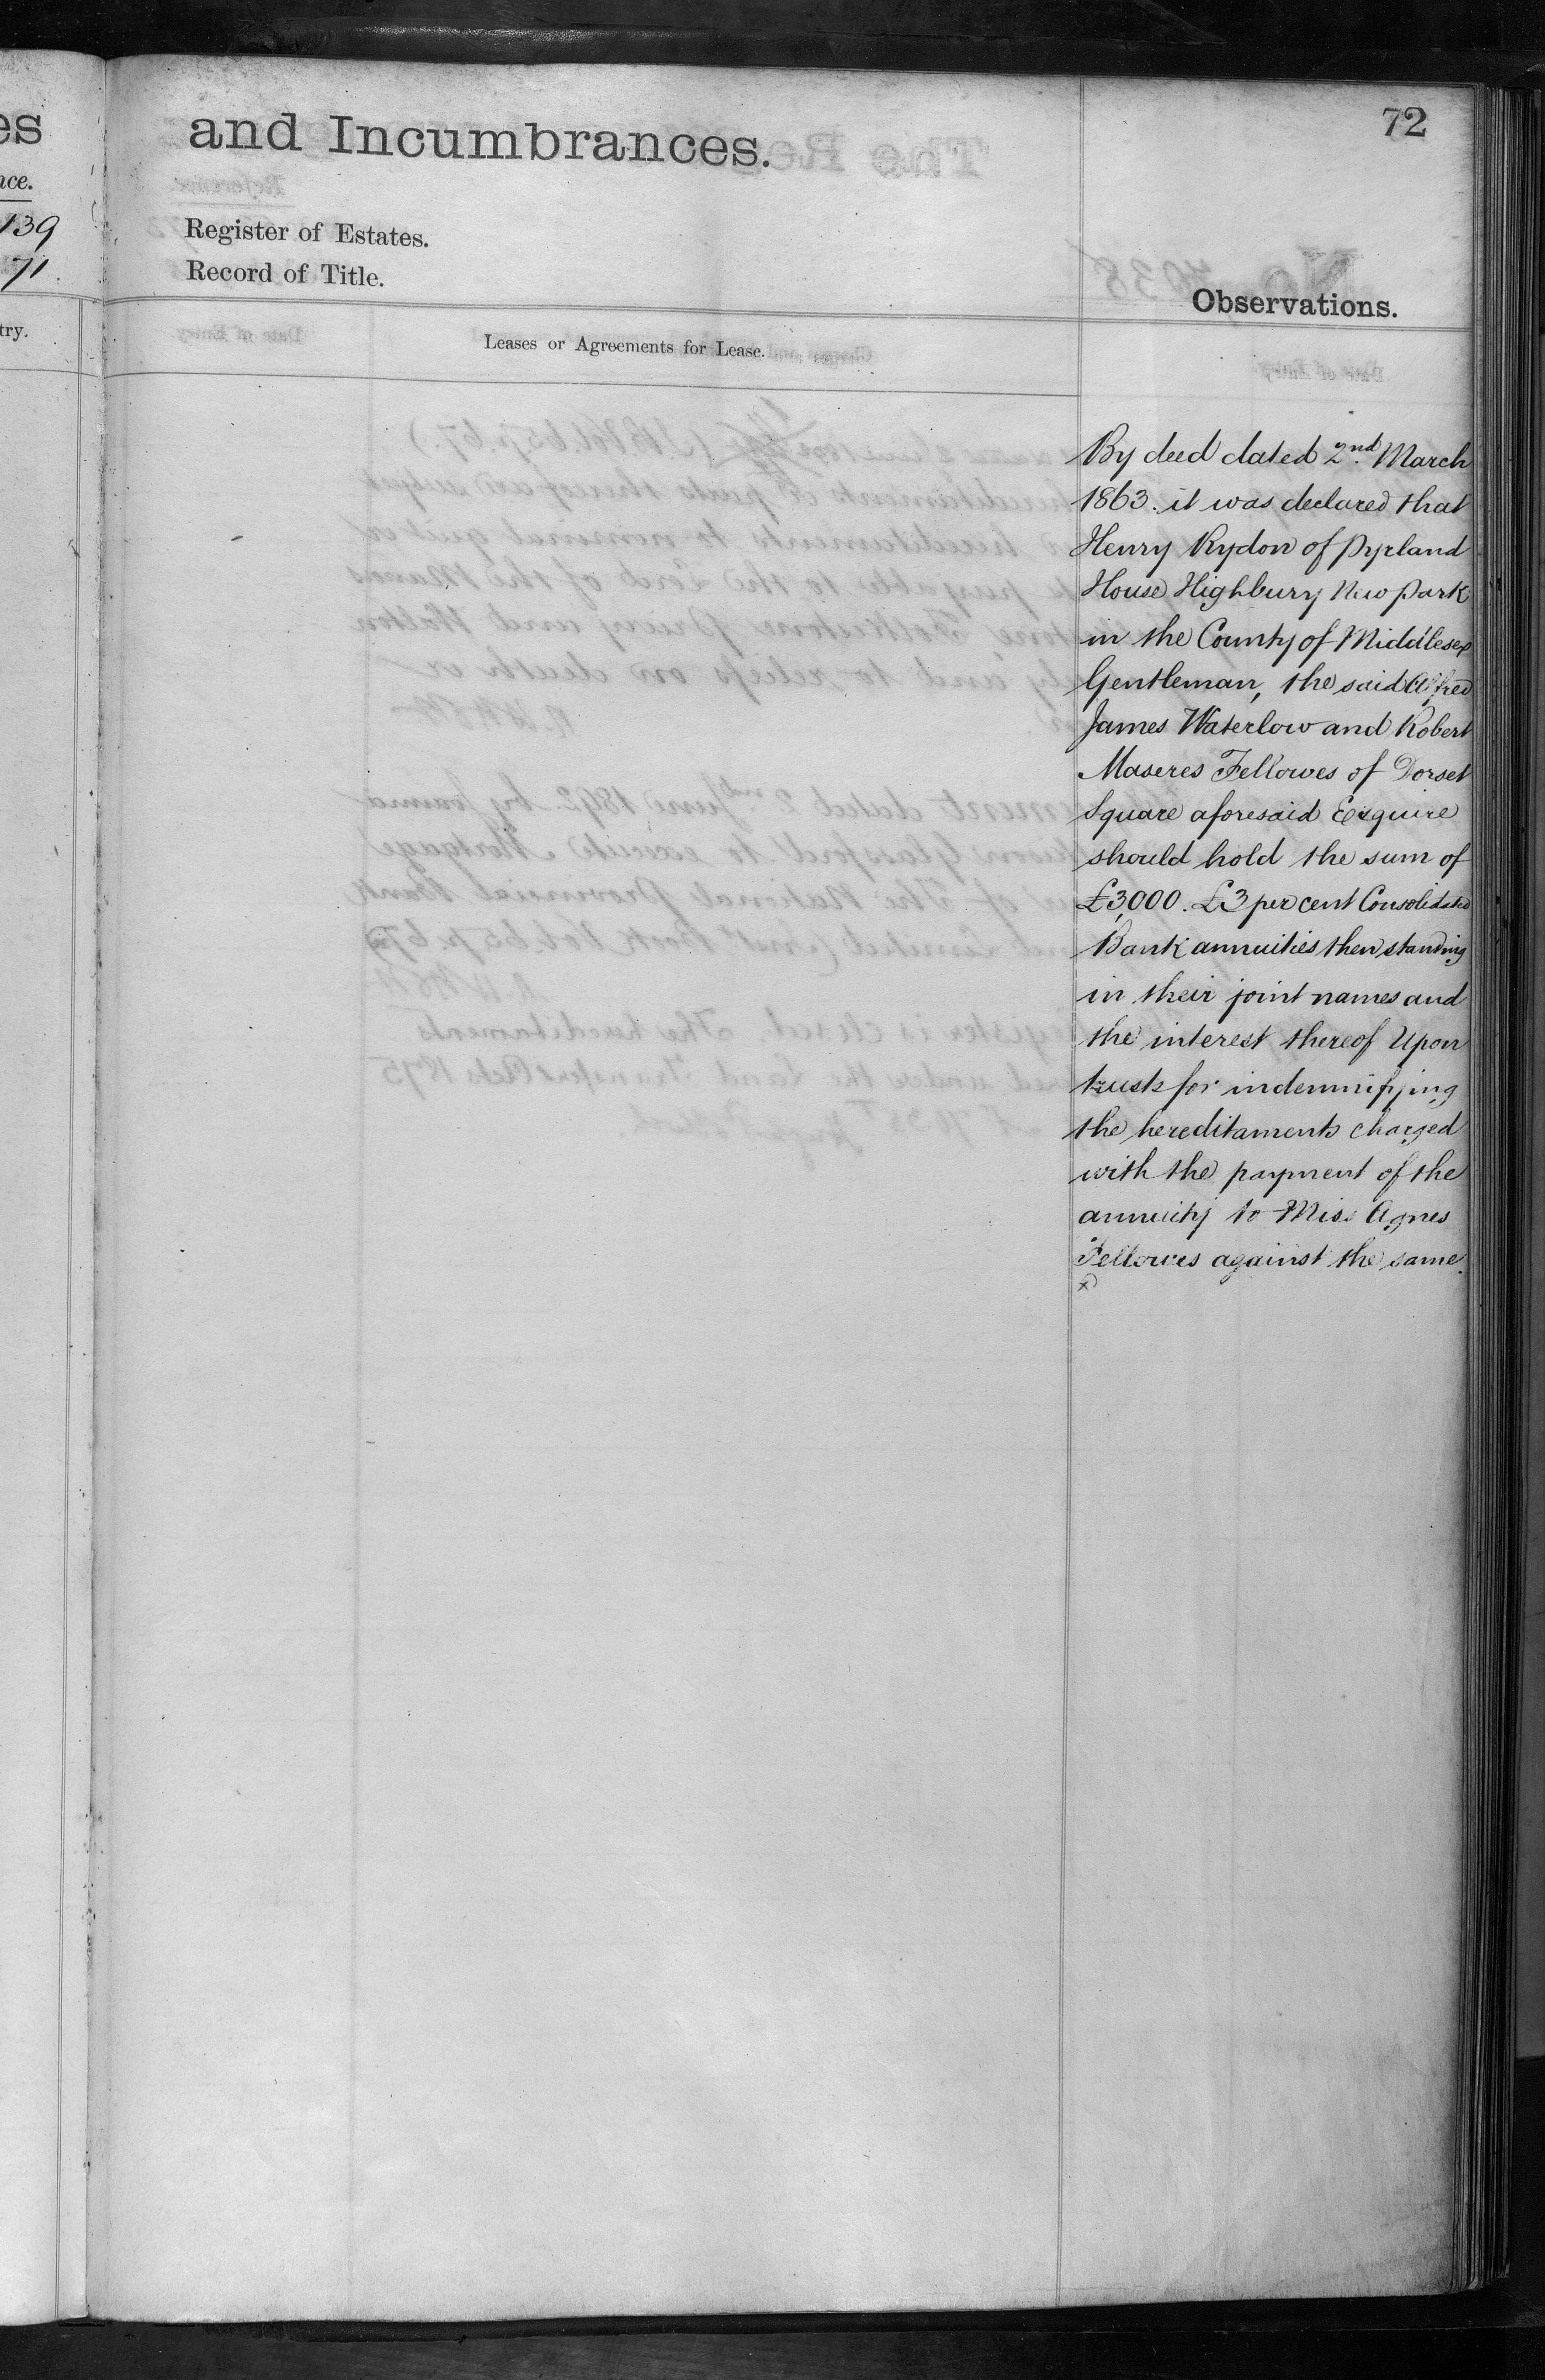 es
and Incumbrances.
72
nce.
139
71.
Register of Estates.
Record of Title.
Observations.
try.
Leases or Agreements for Lease.
By deed dated 2nd. March
1863. it was declared that
Henry Rydon of Pyrland
House Highbury New Park
in the County of Middlesex
Gentleman, the said Alfred
James Waterlow and Robert
Maseres Fellowes of Dorset
Square aforesaid Esquire
should hold the sum of
£3,000. £3 per cent Consolidated
Bank annuities then standing
in their joint names and
the interest thereof Upon
trusts for indemnifying
the hereditaments charged
with the payment of the
annuity to Miss Agnes
Fellowes against the same.